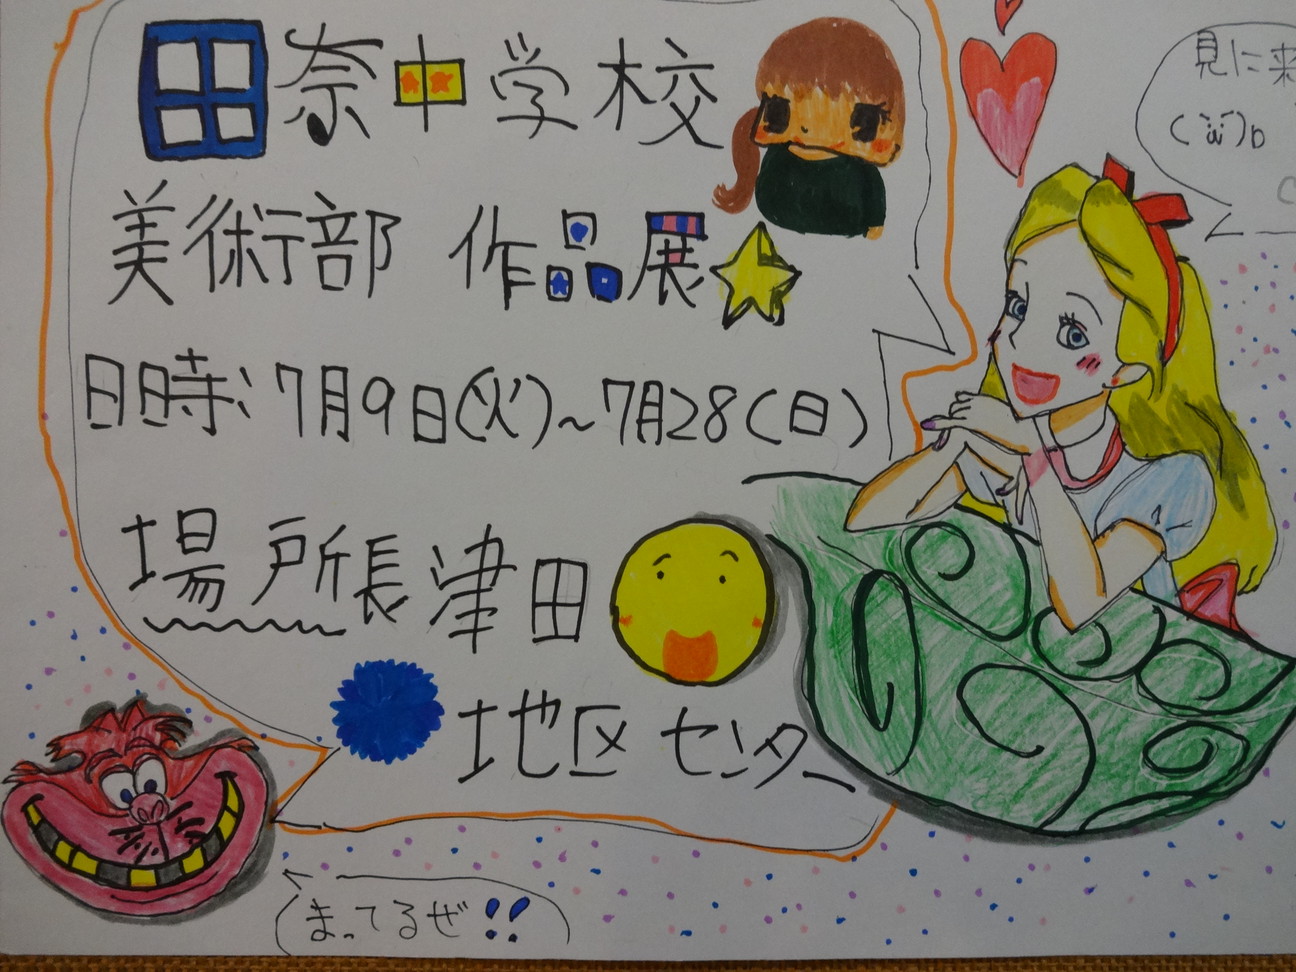 田奈中学校
美術部 作品展
日時、7月9日(火)~7月28(日)
場所長津田
地区センター
見に来
(´ω`)b
まってるぜ!!